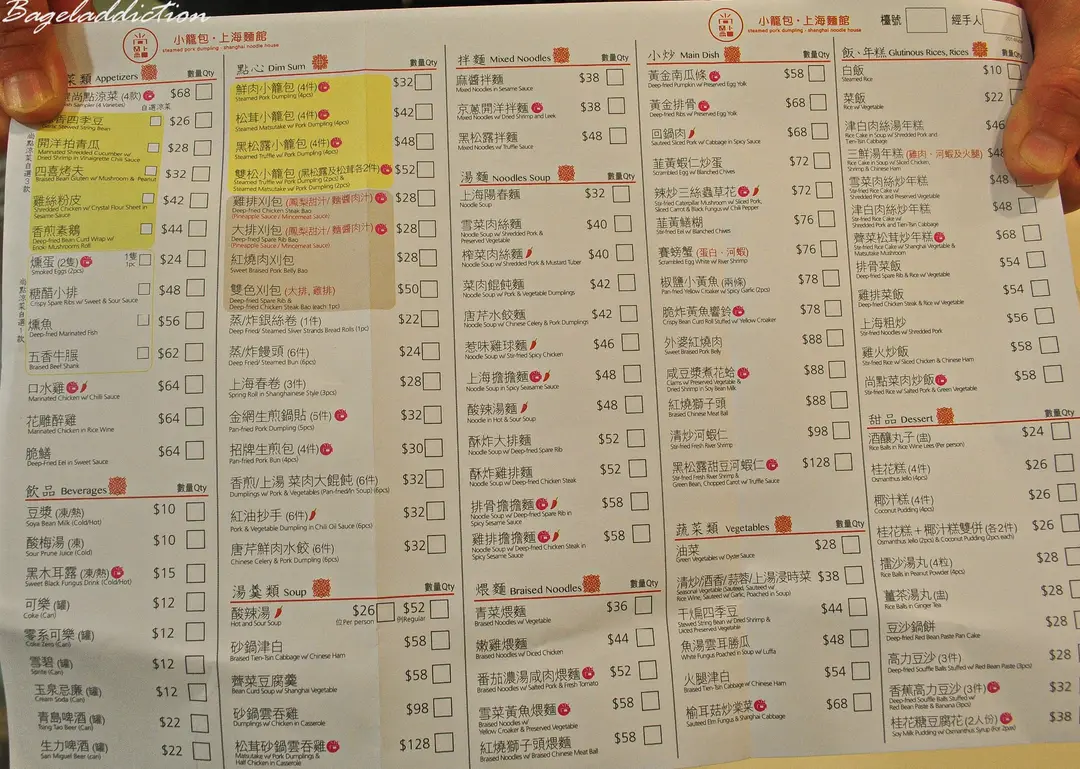 Bageladdiction
小籠包·上海麵館
steamed pork dumpling · shanghai noodle house
小籠包·上海麵館
steamed pork dumpling · shanghai noodle house
檯號
經手人
菜類 Appetizers 數量Qty
尚點涼菜 (4款) $68
自選涼菜
香四季豆 $26
Stewed String Bean
開洋拍青瓜 $28
Marinated Shredded Cucumber w/
Dried Shrimp in Vinaigrette Chili Sauce
四喜烤夫 $32
Braised Bean Gluten w/ Mushroom & Peanut
雞絲粉皮 $42
Shredded Chicken w/ Crystal Flour Sheet in
Sesame Sauce
香煎素鵝 $44
Deep-fried Bean Curd Wrap w/
Enoki Mushrooms Roll
燻蛋 (2隻) 1隻 1pc $24
Smoked Eggs (2pcs)
糖醋小排 $48
Crispy Spare Ribs w/ Sweet & Sour Sauce
燻魚 $56
Deep-fried Marinated Fish
五香牛𦟌 $62
Braised Beef Shank
口水雞 $64
Marinated Chicken w/ Chilli Sauce
花雕醉雞 $64
Marinated Chicken in Rice Wine
脆鱔 $64
Deep-Fried Eel in Sweet Sauce
飲品 Beverages 數量Qty
豆漿 (凍/熱) $10
Soya Bean Milk (Cold/Hot)
酸梅湯 (凍) $10
Sour Prune Juice (Cold)
黑木耳露 (凍/熱) $15
Sweet Black Fungus Drink (Cold/Hot)
可樂 (罐) $12
Coke (Can)
零系可樂 (罐) $12
Coke Zero (Can)
雪碧 (罐) $12
Sprite (Can)
玉泉忌廉 (罐) $12
Cream Soda (Can)
青島啤酒 (罐) $22
Tsing Tao Beer (Can)
生力啤酒 (罐) $22
San Miguel Beer (Can)
點心 Dim Sum 數量Qty
鮮肉小籠包 (4件) $32
Steamed Pork Dumpling (4pcs)
松茸小籠包 (4件) $42
Steamed Matsutake w/ Pork Dumpling (4pcs)
黑松露小籠包 (4件) $48
Steamed Truffle w/ Pork Dumpling (4pcs)
雙松小籠包 (黑松露及松茸各2件) $52
Steamed Truffle w/ Pork Dumpling (2pcs) &
Steamed Matsutake w/ Pork Dumpling (2pcs)
雞排刈包 (鳳梨甜汁/麵醬肉汁) $28
Deep-fried Chicken Steak Bao
(Pineapple Sauce / Mincemeat Sauce)
大排刈包 (鳳梨甜汁/麵醬肉汁) $28
Deep-fried Spare Rib Bao
(Pineapple Sauce / Mincemeat Sauce)
紅燒肉刈包 $28
Sweet Braised Pork Belly Bao
雙色刈包 (大排, 雞排) $50
Deep-fried Spare Rib &
Deep-fried Chicken Steak Bao (each 1pc)
蒸/炸銀絲卷 (1件) $22
Deep Fried/ Steamed Silver Strands Bread Rolls (1pc)
蒸/炸饅頭 (6件) $24
Deep Fried/ Steamed Bun (6pcs)
上海春卷 (3件) $28
Spring Roll in Shanghainese Style (3pcs)
金網生煎鍋貼 (5件) $32
Pan-fried Pork Dumpling (5pcs)
招牌生煎包 (4件) $30
Pan-fried Pork Bun (4pcs)
香煎/上湯 菜肉大餛飩 (6件) $32
Dumplings w/ Pork & Vegetables (Pan-fried/In Soup) (6pcs)
紅油抄手 (6件) $32
Pork & Vegetable Dumpling in Chili Oil Sauce (6pcs)
唐芹鮮肉水餃 (6件) $32
Chinese Celery & Pork Dumpling (6pcs)
湯羹類 Soup 數量Qty
酸辣湯 $26 位Per person $52 例Regular
Hot and Sour Soup
砂鍋津白 $58
Braised Tien-Tsin Cabbage w/ Chinese Ham
薺菜豆腐羹 $58
Bean Curd Soup w/ Shanghai Vegetable
砂鍋雲吞雞 $98
Dumplings w/ Chicken in Casserole
松茸砂鍋雲吞雞 $128
Matsutake w/ Pork Dumplings &
Half Chicken in Casserole
拌麵 Mixed Noodles 數量Qty
麻醬拌麵 $38
Mixed Noodles in Sesame Sauce
京蔥開洋拌麵 $38
Mixed Noodles w/ Dried Shrimp
黑松露拌麵 $48
Mixed Noodles w/ Truffle Sauce
湯麵 Noodles Soup 數量Qty
上海陽春麵 $32
Noodle Soup
雪菜肉絲麵 $40
Noodle Soup w/ Shredded Pork &
Preserved Vegetable
榨菜肉絲麵 $40
Noodle Soup w/ Shredded Pork & Mustard Tuber
菜肉餛飩麵 $42
Noodle Soup w/ Pork & Vegetable Dumplings
唐芹水餃麵 $42
Noodle Soup w/ Chinese Celery & Pork Dumplings
惹味雞球麵 $46
Noodle Soup w/ Stir-fried Spicy Chicken
上海擔擔麵 $48
Noodle Soup in Spicy Seasame Sauce
酸辣湯麵 $48
Noodle in Hot & Sour Soup
酥炸大排麵 $52
Noodle Soup w/ Deep-fried Spare Rib
酥炸雞排麵 $52
Noodle Soup w/ Deep-fried Chicken Steak
排骨擔擔麵 $58
Noodle Soup w/ Deep-fried Spare Rib in
Spicy Sesame Sauce
雞排擔擔麵 $58
Noodle Soup w/ Deep-fried Chicken Steak in
Spicy Sesame Sauce
煨麵 Braised Noodles 數量Qty
青菜煨麵 $36
Braised Noodles w/ Vegetable
嫩雞煨麵 $44
Braised Noodles w/ Diced Chicken
番茄濃湯咸肉煨麵 $52
Braised Noodles w/ Salted Pork & Fresh Tomato
雪菜黃魚煨麵 $58
Braised Noodles w/
Yellow Croaker & Preserved Vegetable
紅燒獅子頭煨麵 $58
Braised Noodles w/ Braised Chinese Meat Ball
小炒 Main Dish 數量Qty
黃金南瓜條 $58
Deep-fried Pumpkin w/ Preserved Egg Yolk
黃金排骨 $68
Deep-fried Ribs w/ Preserved Egg Yolk
回鍋肉 $68
Sauteed Sliced Pork w/ Cabbage in Spicy Sauce
韮黃蝦仁炒蛋 $72
Scrambled Egg w/ Blanched Chives
辣炒三絲蟲草花 $72
Stir-fried Caterpillar Mushroom w/ Sliced Pork,
Sliced Carrot & Black Fungus w/ Chili Pepper
韮黃鱔糊 $76
Stir-fried Eel w/ Blanched Chives
賽螃蟹 (蛋白·河蝦) $76
Scrambled Egg White w/ River Shrimp
椒鹽小黃魚 (兩條) $78
Pan-fried Yellow Croaker w/ Spicy Garlic (2pcs)
脆炸黃魚響鈴 $78
Crispy Bean Curd Roll Stuffed w/ Yellow Croaker
外婆紅燒肉 $88
Sweet Braised Pork Belly
咸豆漿煮花蛤 $88
Clams w/ Preserved Vegetable &
Dried Shrimp in Soy Bean Milk
紅燒獅子頭 $88
Braised Chinese Meat Ball
清炒河蝦仁 $98
Stir-fried Fresh River Shrimp
黑松露甜豆河蝦仁 $128
Stir-fried Fresh River Shrimp &
Green Bean, Chopped Carrot w/ Truffle Sauce
蔬菜類 Vegetables 數量Qty
油菜 $28
Green Vegetables w/ Oyster Sauce
清炒/酒香/蒜蓉/上湯浸時菜 $38
Seasonal Vegetable (Sauteed, Sauteed w/
Rice Wine, Sauteed w/ Garlic, Poached in Soup)
干煸四季豆 $44
Stewed String Bean w/ Dried Shrimp &
Preserved Vegetable
魚湯雲耳勝瓜 $48
White Fungus Poached in Soup w/ Luffa
火腿津白 $54
Braised Tien-Tsin Cabbage w/ Chinese Ham
榆耳菇炒棠菜 $68
Sauteed Elm Fungus & Shanghai Cabbage
飯、年糕 Glutinous Rices, Rices 數量Qty
白飯 $10
Steamed Rice
菜飯 $22
Rice w/ Vegetable
津白肉絲湯年糕 $46
Rice Cake in Soup w/ Shredded Pork and
Tien-Tsin Cabbage
三鮮湯年糕 (雞肉·河蝦及火腿) $48
Rice Cake in Soup w/ Sliced Chicken,
Shrimp & Chinese Ham
雪菜肉絲炒年糕 $48
Stir-fried Rice Cake w/
Shredded Pork and Preserved Vegetable
津白肉絲炒年糕 $48
Stir-fried Rice Cake w/
Shredded Pork and Cabbage
薺菜松茸炒年糕 $68
Stir-fried Rice Cake w/ Shanghai Vegetable &
Matsutake Mushroom
排骨菜飯 $54
Deep-fried Spare Rib & Rice w/ Vegetable
雞排菜飯 $54
Deep-fried Chicken Steak & Rice w/ Vegetable
上海粗炒 $56
Stir-fried Noodles w/ Shredded Pork
雞火炒飯 $58
Stir-fried Rice w/ Sliced Chicken & Chinese Ham
尚點菜肉炒飯 $58
Stir-fried Rice w/ Salted Pork & Green Vegetable
甜品 Dessert 數量Qty
酒釀丸子 (盅) $24
Rice Balls in Rice Wine Lees (Per person)
桂花糕 (4件) $26
Osmanthus Jello (4pcs)
椰汁糕 (4件) $26
Coconut Pudding (4pcs)
桂花糕+椰汁糕雙併 (各2件) $26
Osmanthus Jello (2pcs) & Coconut Pudding (2pcs each)
擂沙湯丸 (4粒) $28
Rice Balls in Peanut Powder (4pcs)
薑茶湯丸 (4粒) $28
Rice Balls in Ginger Tea
豆沙鍋餅 $28
Deep-fried Red Bean Paste Pan Cake
高力豆沙 (3件) $28
Deep-fried Souffle Balls Stuffed w/ Red Bean Paste (3pcs)
香蕉高力豆沙 (3件) $32
Deep-fried Souffle Balls Stuffed w/
Red Bean Paste & Banana (3pcs)
桂花糖豆腐花 (2人份) $38
Soy Milk Pudding w/ Osmanthus Syrup (For 2pax)